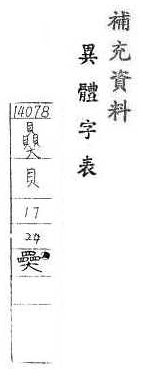 補充資料
異體字表
14078
貝
17
24